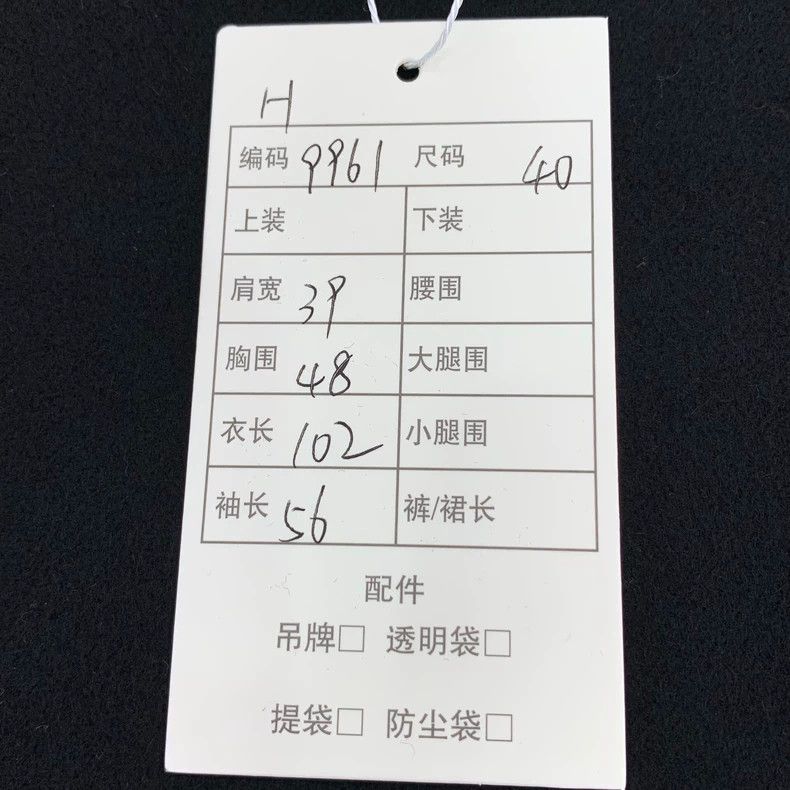 H
编码 9961 尺码 40
上装 下装
肩宽 39 腰围
胸围 48 大腿围
衣长 102 小腿围
袖长 56 裤/裙长
配件
吊牌□ 透明袋□
提袋□ 防尘袋□